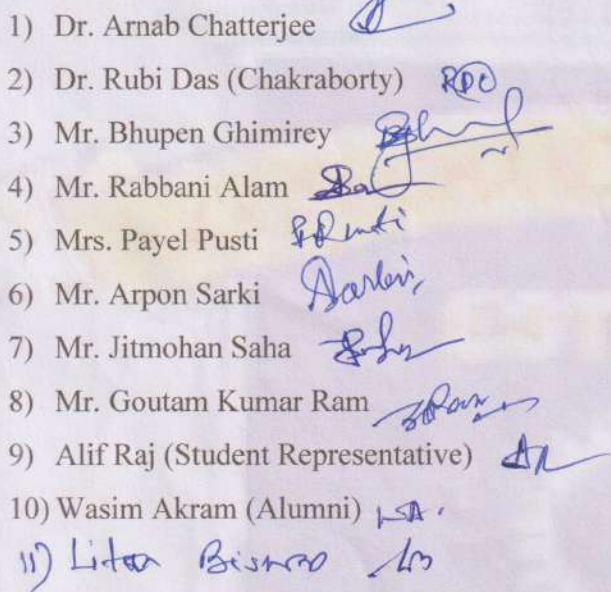 1) Dr. Arnab Chatterjee
2) Dr. Rubi Das (Chakraborty) RDC
3) Mr. Bhupen Ghimirey
4) Mr. Rabbani Alam
5) Mrs. Payel Pusti
6) Mr. Arpon Sarki
7) Mr. Jitmohan Saha
8) Mr. Goutam Kumar Ram
9) Alif Raj (Student Representative) AR
10) Wasim Akram (Alumni) WA.
11)